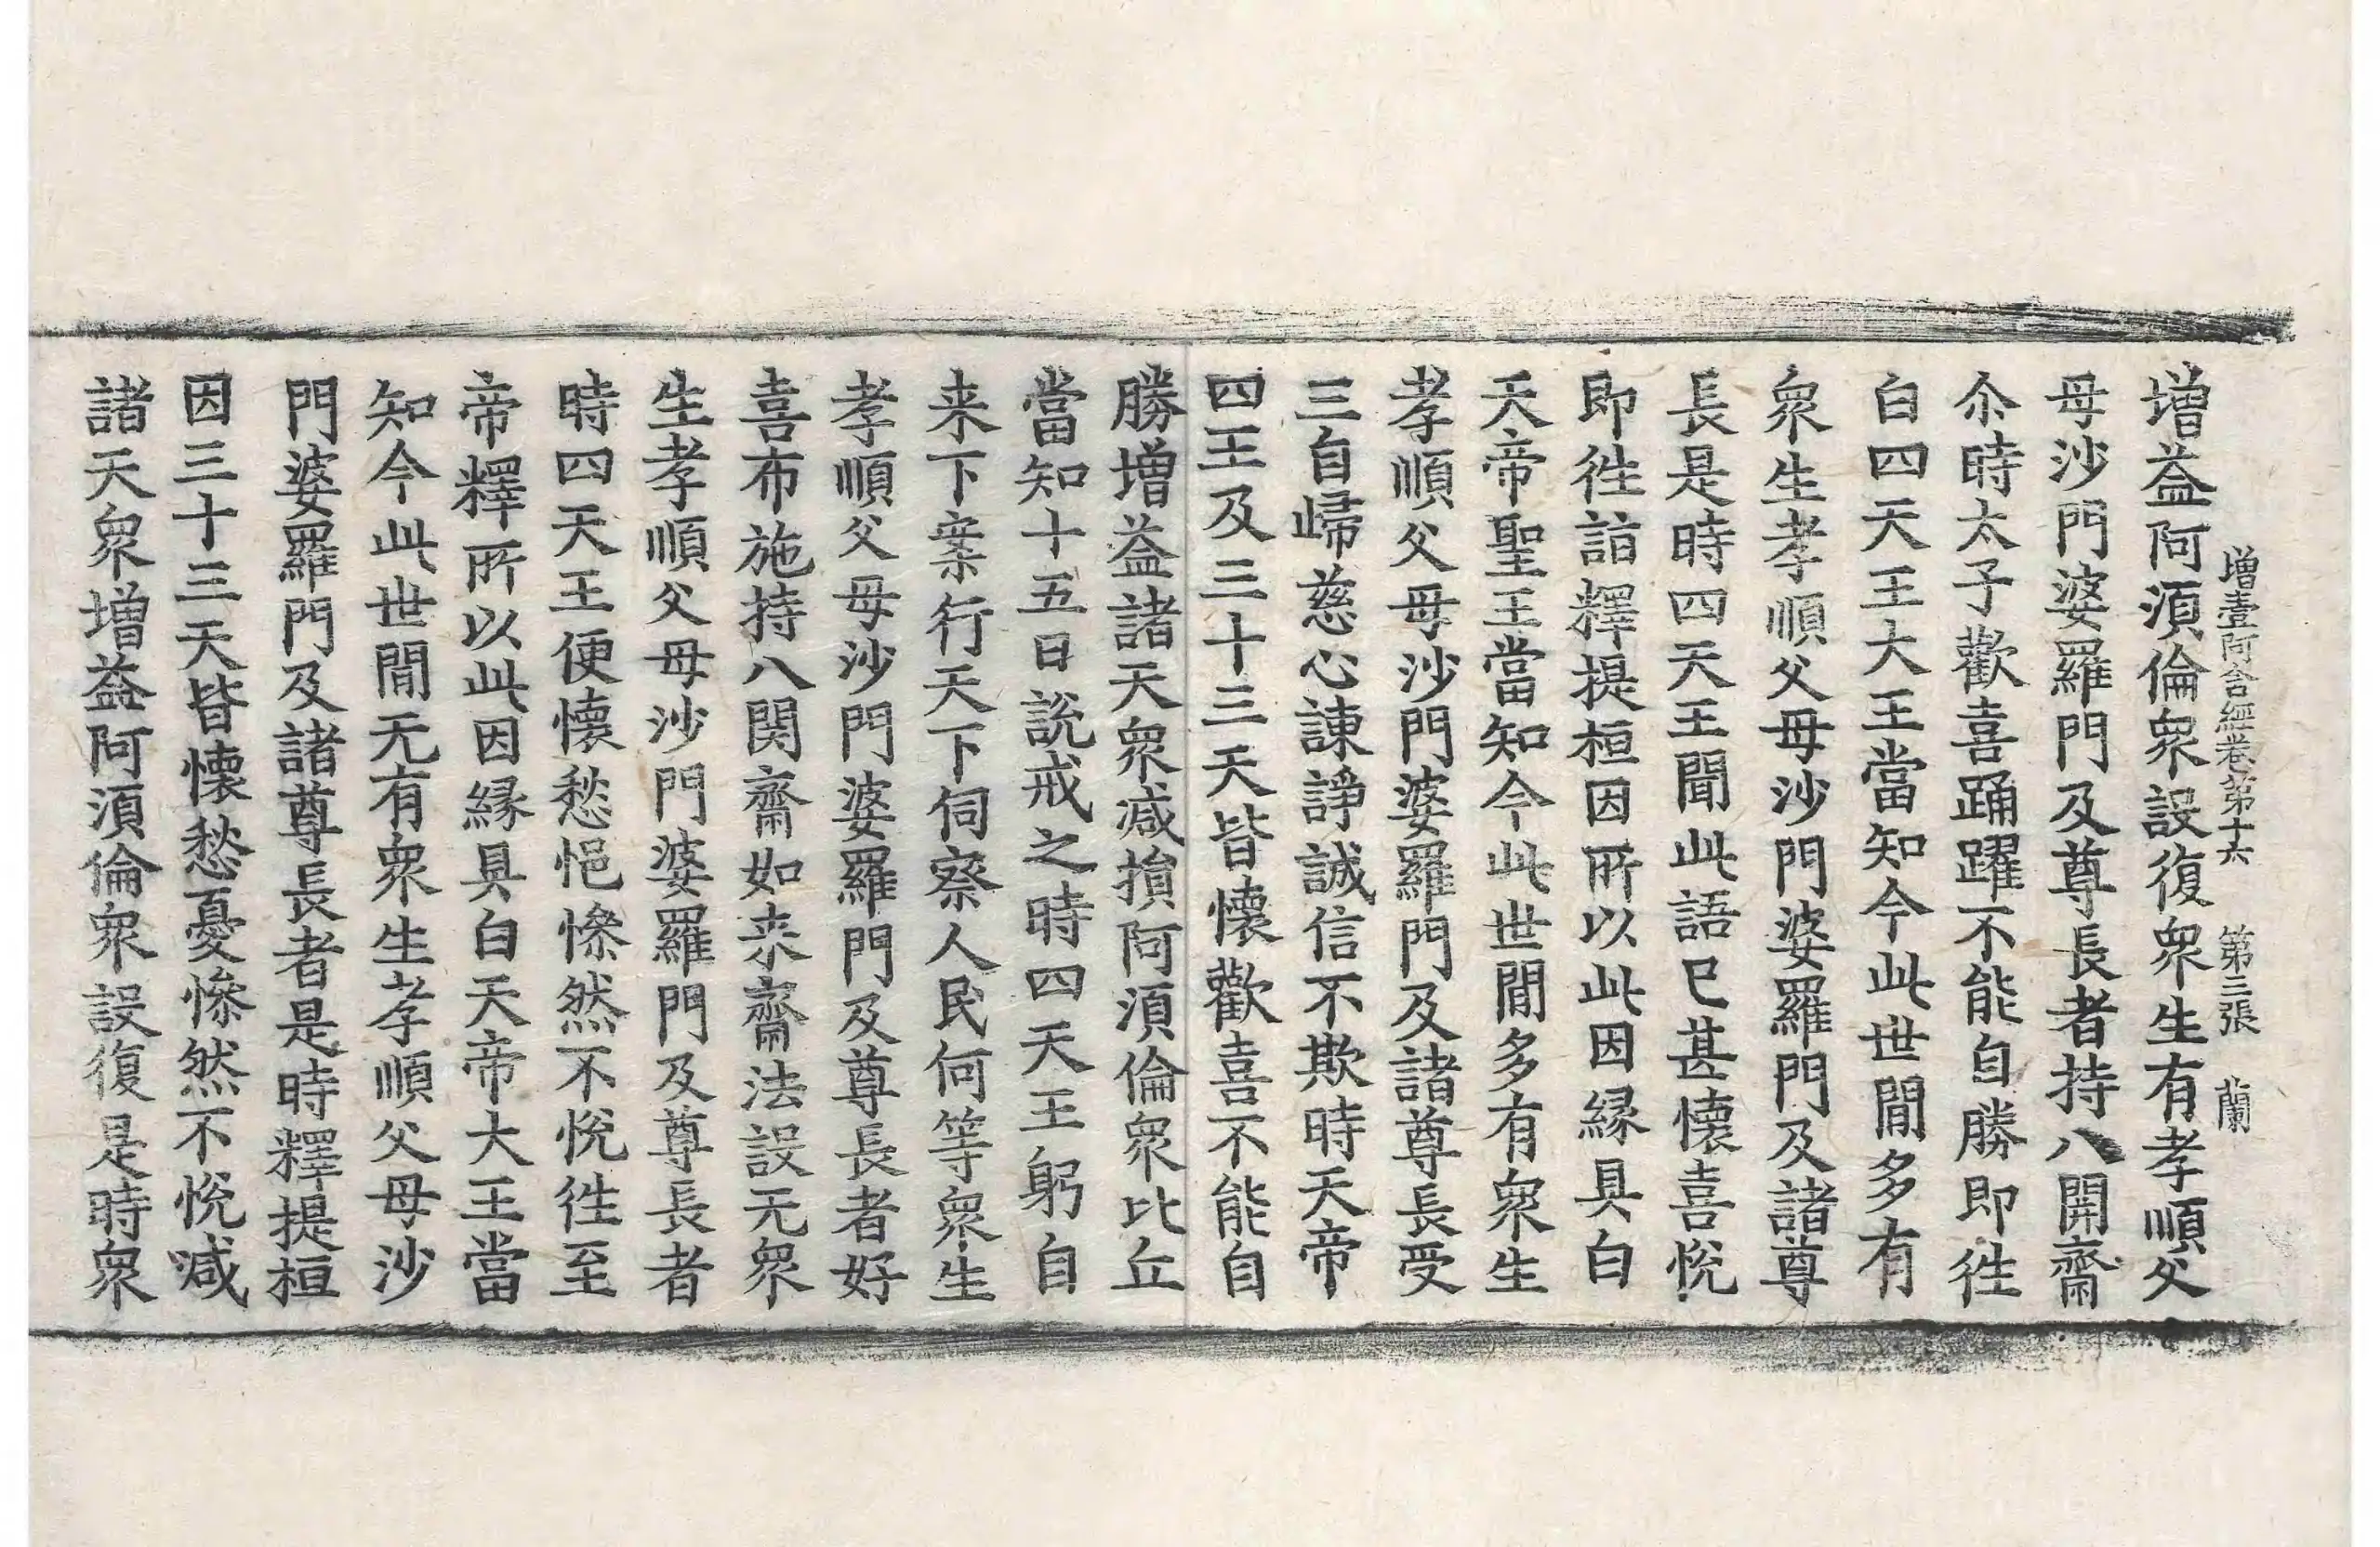 增壹阿含經卷第十六　第三張　蘭
增益阿湏倫衆設復衆生有孝順父
母沙門婆羅門及尊長者持八關齋
尒時太子歡喜踊躍不能自勝即徃
白四天王大王當知今此世閒多有
衆生孝順父母沙門婆羅門及諸尊
長是時四天王聞此語已甚懷喜恱
即徃詣釋提桓因所以此因緣具白
天帝聖王當知今此世閒多有衆生
孝順父母沙門婆羅門及諸尊長受
三自歸慈心諫諍誠信不欺時天帝
四王及三十三天皆懷歡喜不能自
勝增益諸天衆减損阿湏倫衆比丘
當知十五日說戒之時四天王躬自
来下案行天下伺察人民何等衆生
孝順父母沙門婆羅門及尊長者好
喜布施持八関齋如来齋法設无衆
生孝順父母沙門婆羅門及尊長者
時四天王便懷愁悒慘然不恱徃至
帝釋所以此因緣具白天帝大王當
知今此世閒无有衆生孝順父母沙
門婆羅門及諸尊長者是時釋提桓
因三十三天皆懷愁憂慘然不恱减
諸天衆增益阿湏倫衆設復是時衆